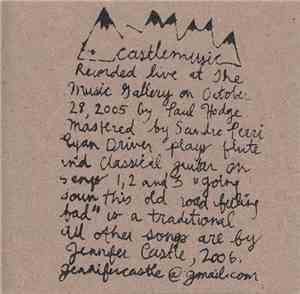 castlemusic
Recorded live at The
Music Gallery on October
28, 2005 by Paul Hodge
Mastered by Sandro Perri
Ryan Driver plays flute
and Classical guitar on
songs 1, 2 and 3 "going
down this old road feeling
bad" is a traditional
all other songs are by
Jennifer Castle, 2006.
jennifercastle@gmail.com